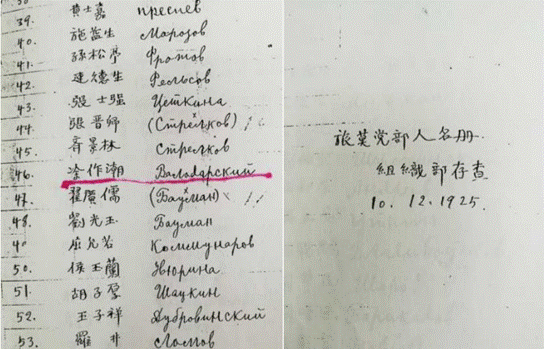 39. 黄士嘉 Преснев
40. 施益生 Марозов
41. 孫松亭 Фротов
42. 建德生 Рельсов
43. 張士强 Цеткина
44. 張晋師 (Стрелков)
45. 齐景林 Стрелков
46. 洤作潮 Валодарский
47. 翟廣儒 (Бауман)
48. 劉光玉 Бауман
49. 屈允若 Коммунаров
50. 侯玉蘭 Нюрина
51. 胡子厚 Шаукин
52. 王子祥 Дубровинский
53. 羅 Ламов
旅莫党部人名册
組織部存查
10.12.1925.